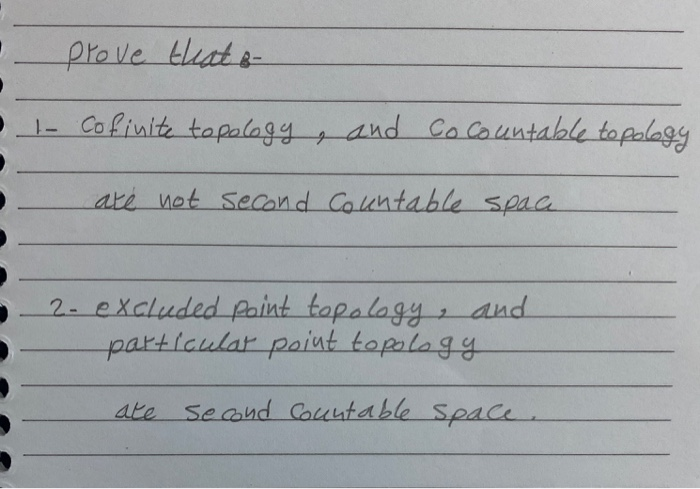 prove that :-
1- Cofinite topology , and Cocountable topology
are not second Countable spac
2- excluded point topology , and
particular point topology
are second Countable space .